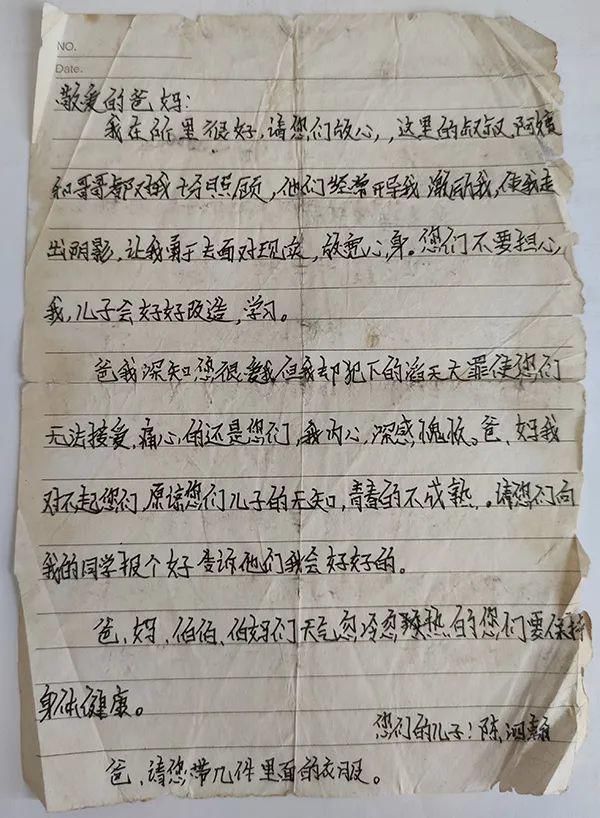 NO.
Date.
敬爱的爸妈:
我在所里很好,请您们放心,,这里的叔叔,阿姨
和哥哥都对我十分照顾,他们经常开导我 激励我,使我走
出阴影,让我勇于去面对现实,放宽心,身。您们不要担心,
我,儿子会好好改造,学习。
爸我深知您很爱我但我却犯下的滔天大罪使您们
无法接受,痛心,的还是您们,我内心,深感,愧疚。爸、妈我
对不起您们,原谅您们儿子的无知,青春的不成熟.。请您们向
我的同学报个好 告诉他们我会好好的。
爸、妈、伯伯、伯妈们天气忽冷忽热的您们要保持
身体健康。
您们的儿子:陈泗
爸,请您带几件里面的衣服。